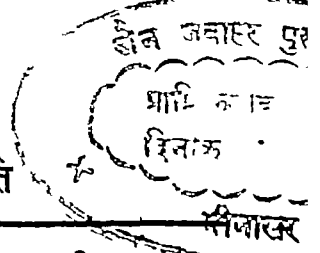 जैन जवाहर पुस
प्राप्ति क्रमांक
दिनांक
ति
भीनासर